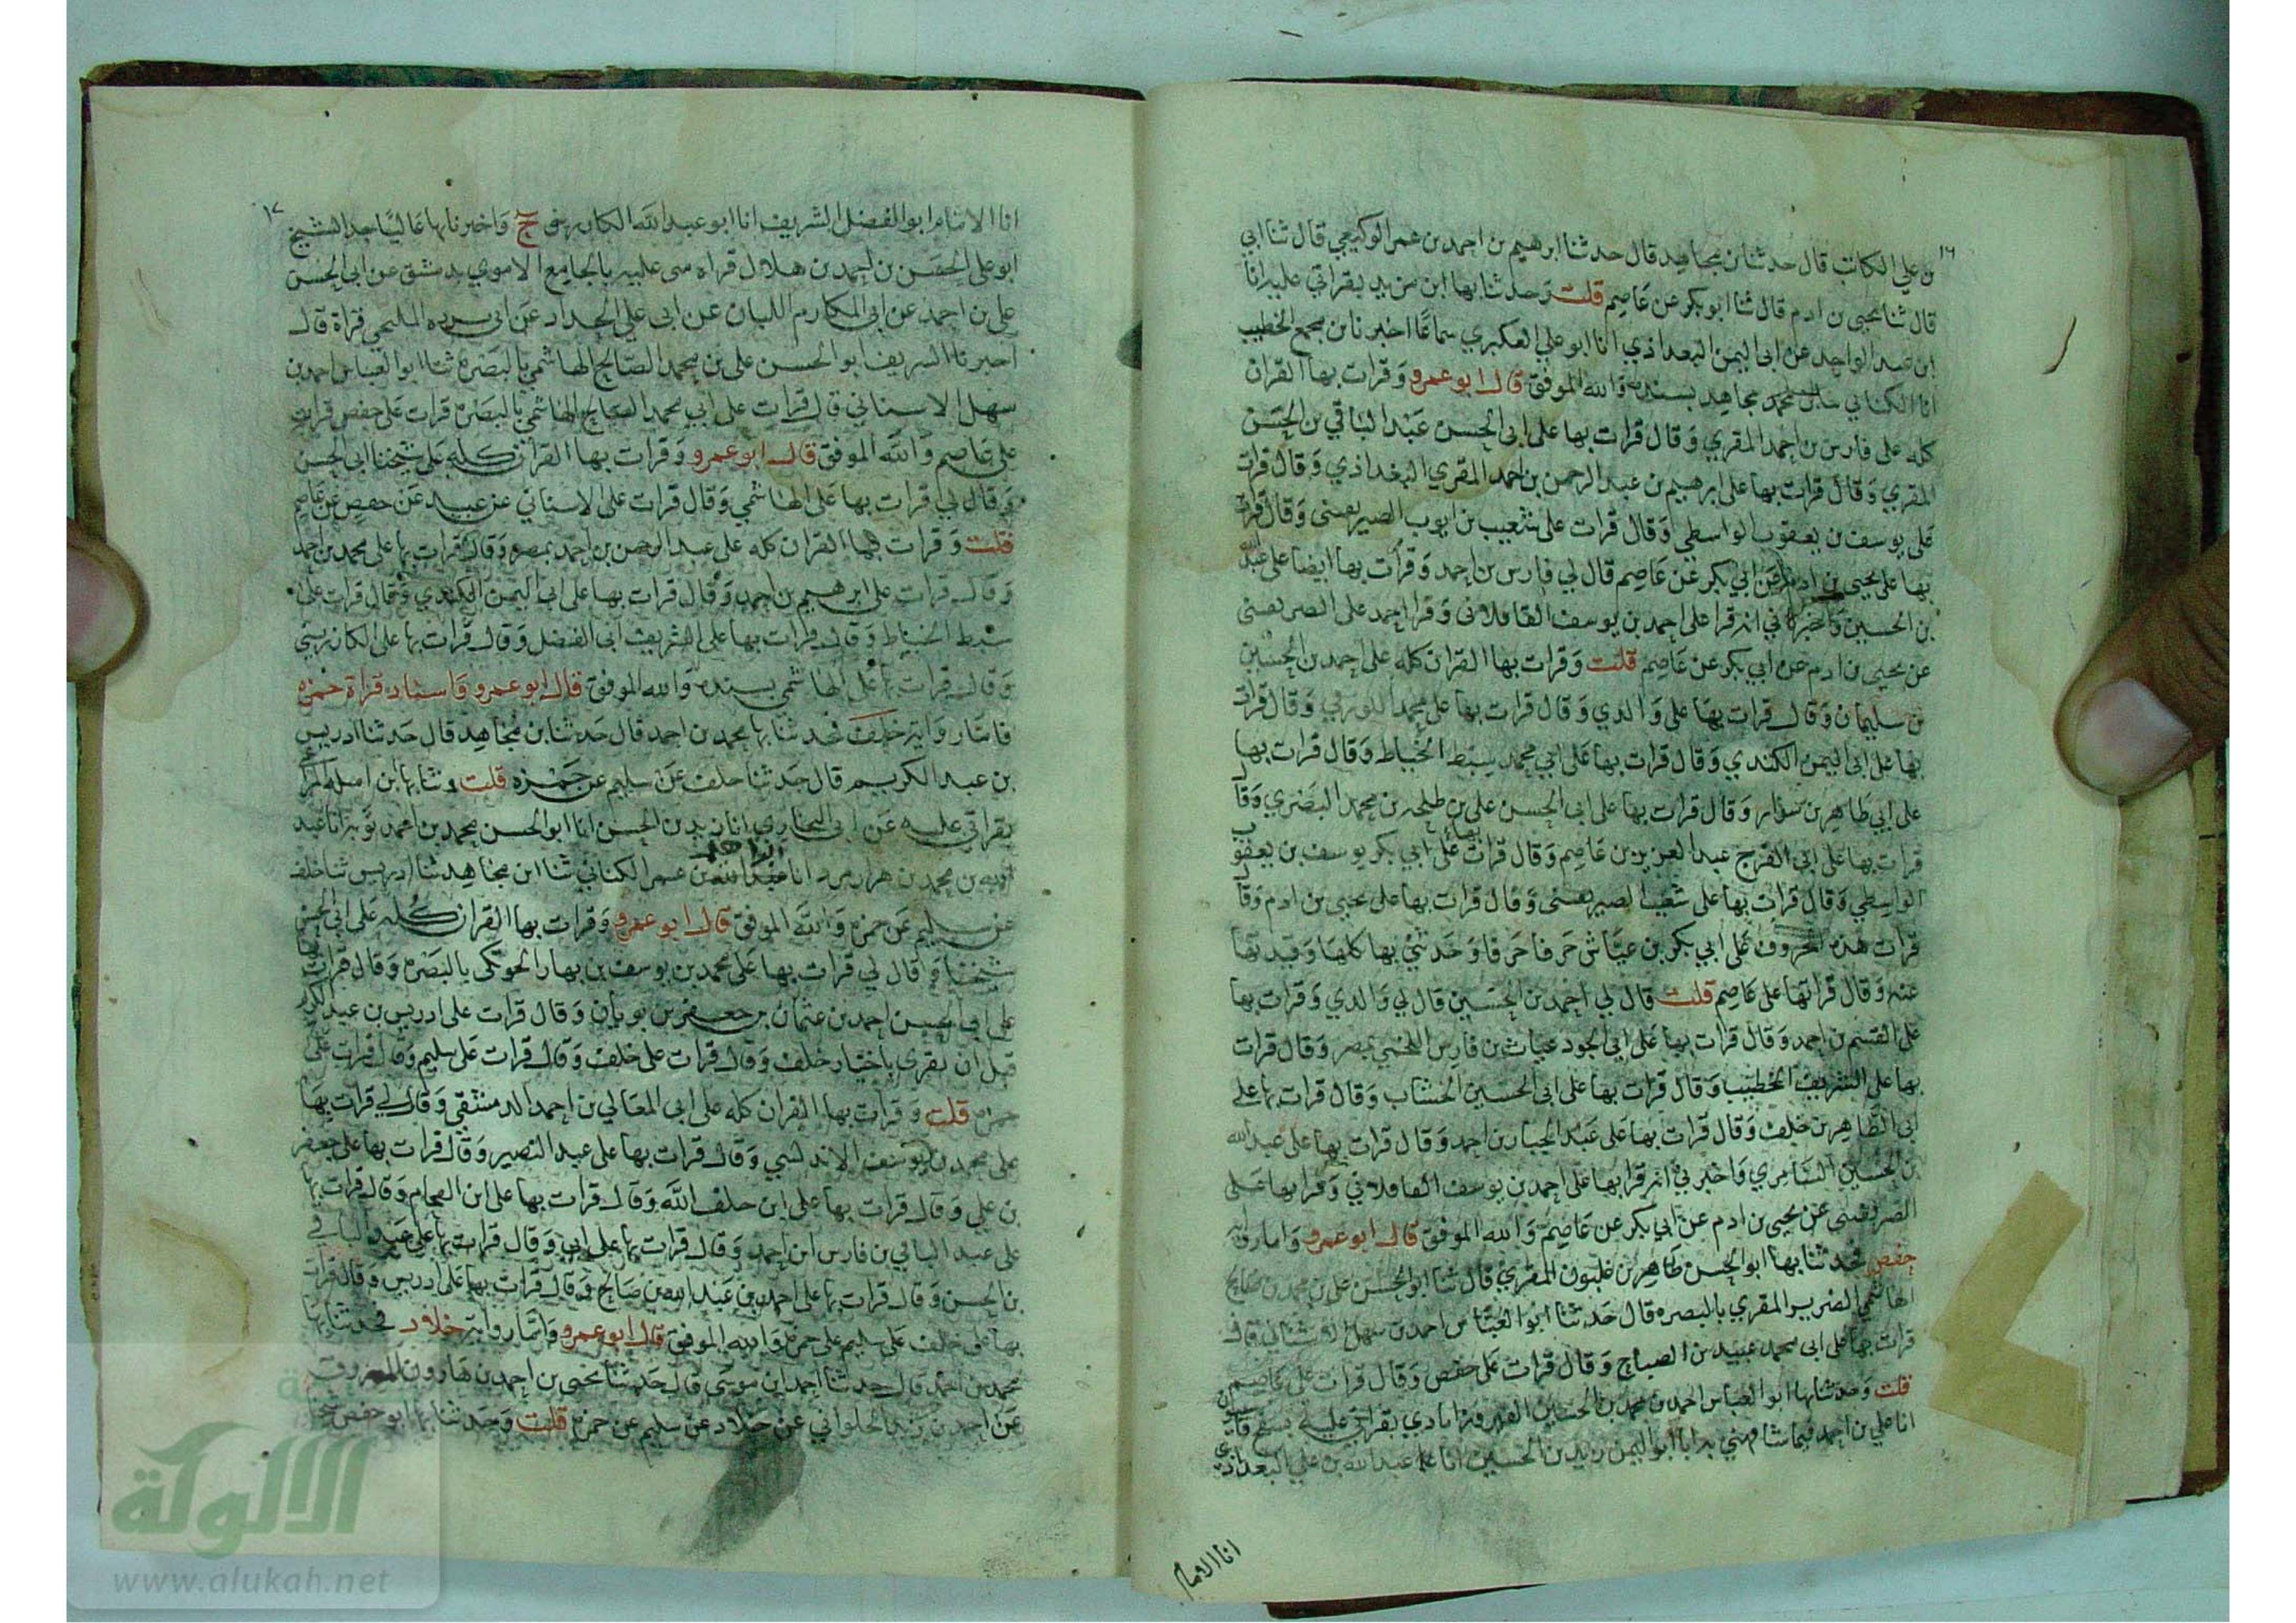 ١٦
بن علي الكاتب قال حدثنا بن مجاهد قال حدثنا ابرهيم بن احمد بن عمر الوكيعي قال ثنا ابي
قال ثنا يحيى بن ادم قال ثنا ابو بكر عن عاصم قلت وحدثنا بها ابن من يد بقراتي عليه انا
ابن عبد الواحد عن ابى اليمن البغداذي انا ابو علي العكبري سماعا اخبرنا بن مجمع الخطيب
انا الكتاني محمد مجاهد بسنده والله الموفق قال ابو عمرو وقرات بها القران
كله على فارس بن احمد المقري وقال قرات بها على ابى الحسن عبد الباقي بن الحسن
المقري وقال قرات بها على ابرهيم بن عبد الرحمن بن احمد المقري البغداذي وقال قرات
على يوسف بن يعقوب الواسطي وقال قرات على شعيب بن ايوب الصيريفينى وقال قرات
بها على يحيى بن ادم عن ابي بكر عن عاصم قال لي فارس بن احمد وقرات بها ايضا على عبد الله
بن الحسين واخبرني انه قرا على احمد بن يوسف القافلانى وقرا احمد على الصريفينى
عن يحيى بن ادم عن ابي بكر عن عاصم قلت وقرات بها القران كله على احمد بن الحسين
بن سليمان وقال قرات بها على والدي وقال قرات بها على محمد اللورقي وقال قرات
بها على ابى اليمن الكندي وقال قرات بها على ابي محمد سبط الخياط وقال قرات بها
على ابي طاهر بن سوار وقال قرات بها على ابى الحسن على بن طلحه بن محمد البصري وقال
قرات بها على ابى الفرج عبد العزيز بن عاصم وقال قرات بها على ابي بكر يوسف بن يعقوب
الواسطي وقال قرات بها على شعيب الصيريفينى وقال قرات بها على يحيى بن ادم وقال
قرات هذه الحروف على ابي بكر بن عياش حرفا حرفا وحدثني بها كلها وقيدتها
عنه وقال قراتها على عاصم قلت قال لي احمد بن الحسين قال لي والدي وقرات بها
على القسم بن احمد وقال قرات بها على ابى الجود غياث بن فارس اللخمي بمصر وقال قرات
بها على الشريف الخطيب وقال قرات بها على ابى الحسين الخشاب وقال قرات بها على
ابى الطاهر بن خلف وقال قرات بها على عبد الجبار بن احمد وقال قرات بها على عبد الله
بن الحسين السامري واخبرني انه قرا بها على احمد بن يوسف القافلاني وقرا بها على
الصريفيني عن يحيى بن ادم عن ابي بكر عن عاصم والله الموفق قال ابو عمرو واما رواية
حفص فحدثنا بها ابو الحسن طاهر بن غلبون المقري قال ثنا ابو الحسن على بن محمد بن صالح
الهاشمي الضرير المقري بالبصره قال حدثنا ابو العباس احمد بن سهل الاشناني قال
قرات بها على ابى محمد عبيد بن الصباح وقال قرات على حفص وقال قرات على عاصم
قلت وحدثنا بها ابو العباس احمد بن محمد بن الحسين بقراتي عليه بسفح قاسيون
انا علي بن احمد فيما شافهني به انا ابو اليمن زيد بن الحسين انا عبد الله بن علي البغدادي
انا الامام
١٧
انا الامام ابو الفضل الشريف انا ابو عبد الله الكارزينى ح واخبرنا بها عاليا جدا الشيخ
ابو على الحسن بن احمد بن هلال قراه منى عليه بالجامع الاموي بدمشق عن ابى الحسن
على بن احمد عن ابى المكارم اللبان عن ابى علي الحداد عن ابى قراة قال
اخبرنا الشريف ابو الحسن على بن محمد الصالح الهاشمي بالبصره ثنا ابو العباس احمد بن
سهل الاسناني قال قرات على ابي محمد الصباح الهاشمي بالبصره قرات على حفص قرات
على عاصم والله الموفق قال ابو عمرو وقرات بها القران كله على شيخنا ابى الحسن
وقال لي قرات بها على الهاشمي وقال قرات على الاسناني عن عبيد عن حفص عن عاصم
قلت وقرات بهما القران كله على عبد الرحمن بن احمد بمصره وقال قرات بها على محمد بن احمد
وقال قرات على ابرهيم بن احمد وقال قرات بها على ابى اليمن الكندي وقال قرات على
سبط الخياط وقال قرات بها على الشريف ابى الفضل وقال قرات بها على الكارزينى
وقال قرات بها على الهاشمي بسنده والله الموفق قال ابو عمرو واسناد قراة حمزه
فاما رواية خلف فحدثنا بها محمد بن احمد قال حدثنا بن مجاهد قال حدثنا ادريس
بن عبد الكريم قال حدثنا خلف عن سليم عن حمزه قلت وثنا بها ابن اميله المراغي
بقراتي عليه عن ابى البخاري انا زيد بن الحسن انا ابو الحسن محمد بن احمد توبه انا عبد
الله بن محمد بن هزارمرد انا عمر الكتاني ثنا ابن مجاهد ثنا ادريس ثنا خلف
عن سليم عن حمزه والله الموفق قال ابو عمرو وقرات بها القران كله على ابى الحسن
شيخنا وقال لي قرات بها على محمد بن يوسف بن بهار الحوتكى بالبصره وقال قرات بها
على ابى الحسين احمد بن عثمان بن جعفر بن بويان وقال قرات على ادريس بن عبد الكريم
قبل ان يقرى باختيار خلف وقال قرات على خلف وقال قرات على سليم وقال قرات على
حمزه قلت وقرات بها القران كله على ابى المعالي بن احمد الدمشقي وقال لي قرات بها
على محمد بن يوسف الاندلسي وقال قرات بها على عبد النصير وقال قرات بها على جعفر
بن علي وقال قرات بها على ابن خلف الله وقال قرات بها على ابن الفحام وقال قرات بها
على عبد الباقي بن فارس ابن احمد وقال قرات بها على ابي وقال قرات بها على عبد الباقي
بن الحسن وقال قرات بها على احمد بن عبد الله بن صالح وقال قرات بها على ادريس وقال قرات
بها على خلف على سليم على حمزه والله الموفق قال ابو عمرو واما رواية خلاد فحدثنا بها
محمد بن احمد قال حدثنا احمد ابن موسى قال حدثنا يحيى بن احمد بن هارون المعروف
عن احمد بن يزيد الحلواني عن خلاد عن سليم عن حمزه قلت وحدثنا بها ابو حفص
الالوكة
www.alukah.net